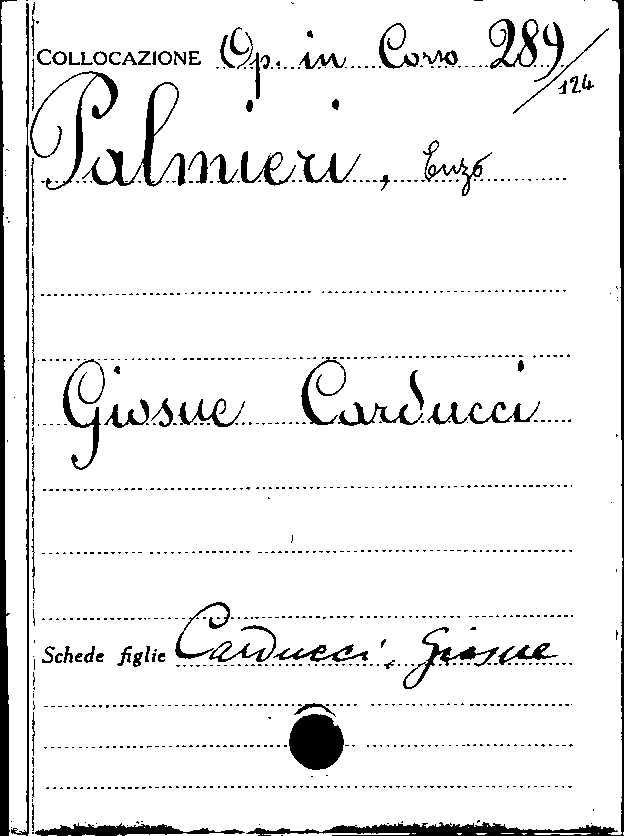 COLLOCAZIONE Op. in Corso 289/124
Palmieri, Enzo
Giosue Carducci
Schede figlie Carducci, Giosue